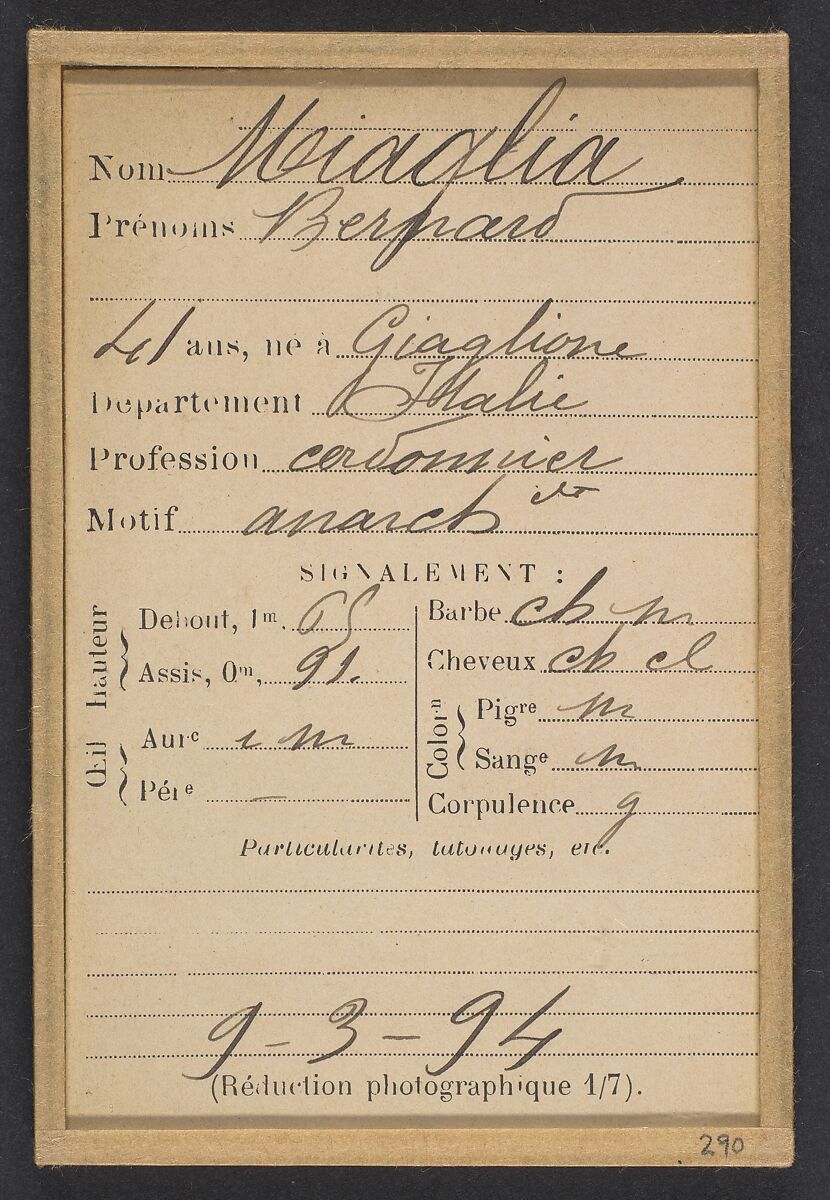 Nom Miaglia
Prénoms Bernard
41 ans, né à Giaglione
Département Italie
Profession cordonnier
Motif anarchte
SIGNALEMENT :
hauteur
Debout, 1m, 65
Assis, 0m, 91.
Œil
Aurc i m
Pére —
Barbe ch m
Cheveux ch cl
Colorn
Pigre m
Sange m
Corpulence g
Particularités, tatouages, etc.
9-3-94
(Réduction photographique 1/7).
290